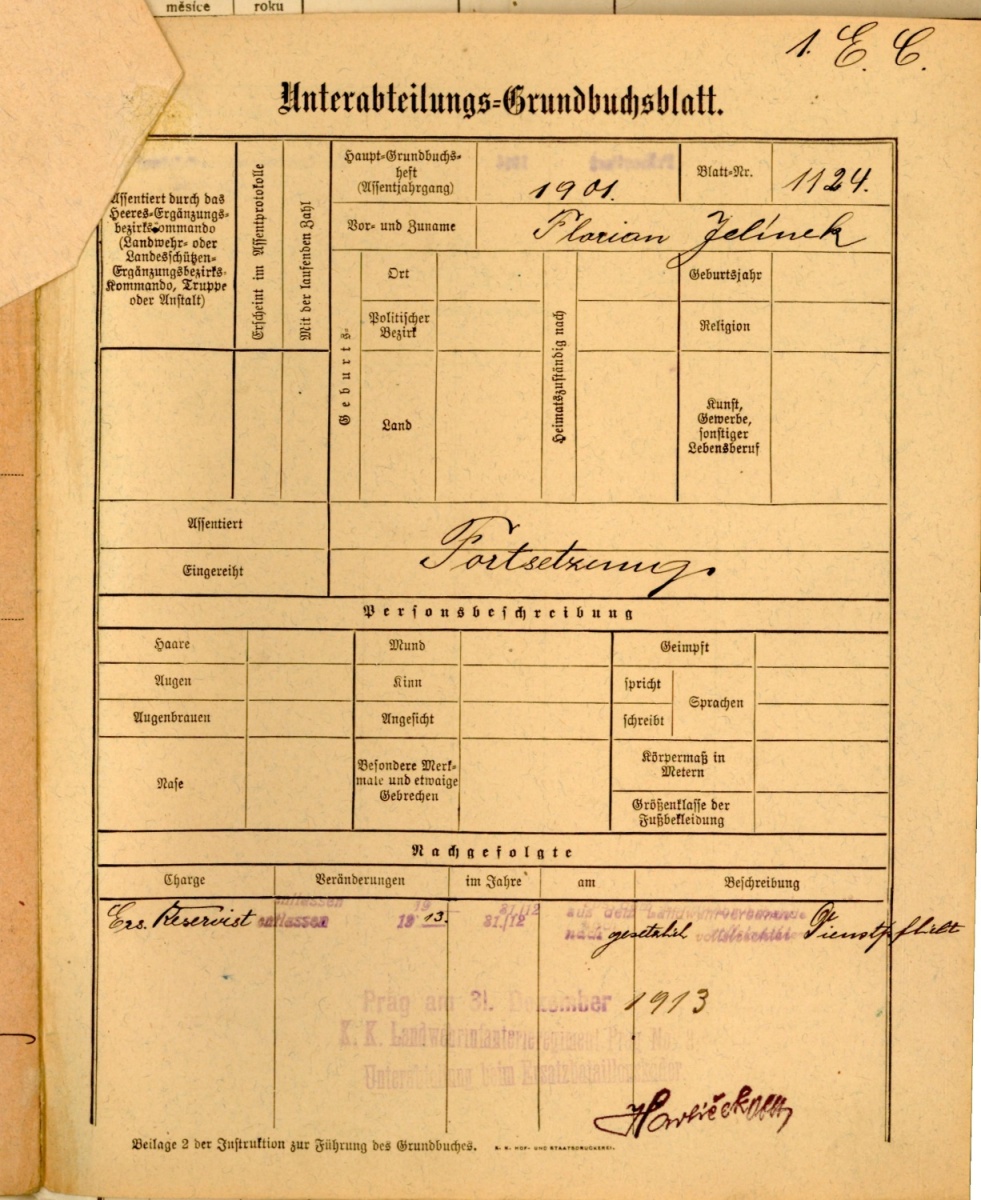 měsíce roku
1. E. C.
Unterabteilungs=Grundbuchsblatt.
Assentiert durch das
Heeres-Ergänzungs-
bezirkskommando
(Landwehr- oder
Landesschützen-
Ergänzungsbezirks-
Kommando, Truppe
oder Anstalt)
Erscheint im Assentprotokolle
Mit der laufenden Zahl
Haupt-Grundbuchs-
heft
(Assentjahrgang)
1901.
Blatt-Nr.
1124.
Vor- und Zuname
Florian Jelínek
Geburts-
Ort
Politischer
Bezirk
Land
Heimatszuständig nach
Geburtsjahr
Religion
Kunst,
Gewerbe,
sonstiger
Lebensberuf
Assentiert
Eingereiht
Fortsetzung.
Personsbeschreibung
Haare
Augen
Augenbrauen
Nase
Mund
Kinn
Angesicht
Besondere Merk-
male und etwaige
Gebrechen
Geimpft
spricht
schreibt
Sprachen
Körpermaß in
Metern
Größenklasse der
Fußbekleidung
Nachgefolgte
Charge Veränderungen im Jahre am Beschreibung
entlassen 19 31./12 aus dem Landwehrverbande
Ers. Reservist entlassen 1913. 31./12 nach gesetzlich vollstreckter Dienstpflicht
Prag am 31. Dezember 1913
K. K. Landwehrinfanterieregiment Prag No. 8
Unterabteilung beim Ersatzbataillonskader
Beilage 2 der Instruktion zur Führung des Grundbuches. K. K. HOF- UND STAATSDRUCKEREI.